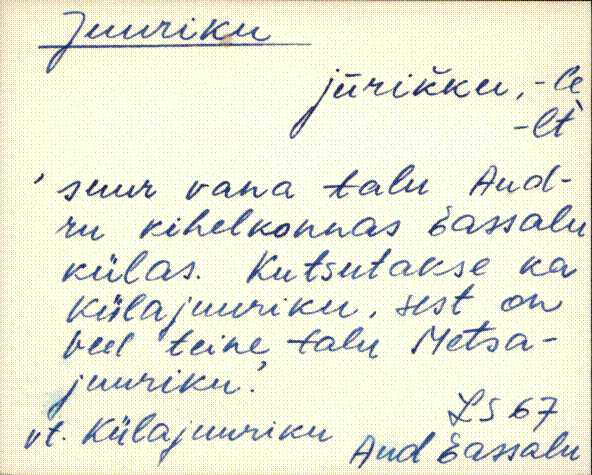 Juuriku
jūrikku, -le
-lt
' suur vana talu Aud-
ru kihelkonnas Eassalu
külas. Kutsutakse ka
Külajuuriku, sest on
veel teine talu Metsa-
juuriku.'
LS 67
vt. Külajuuriku
Aud Eassalu